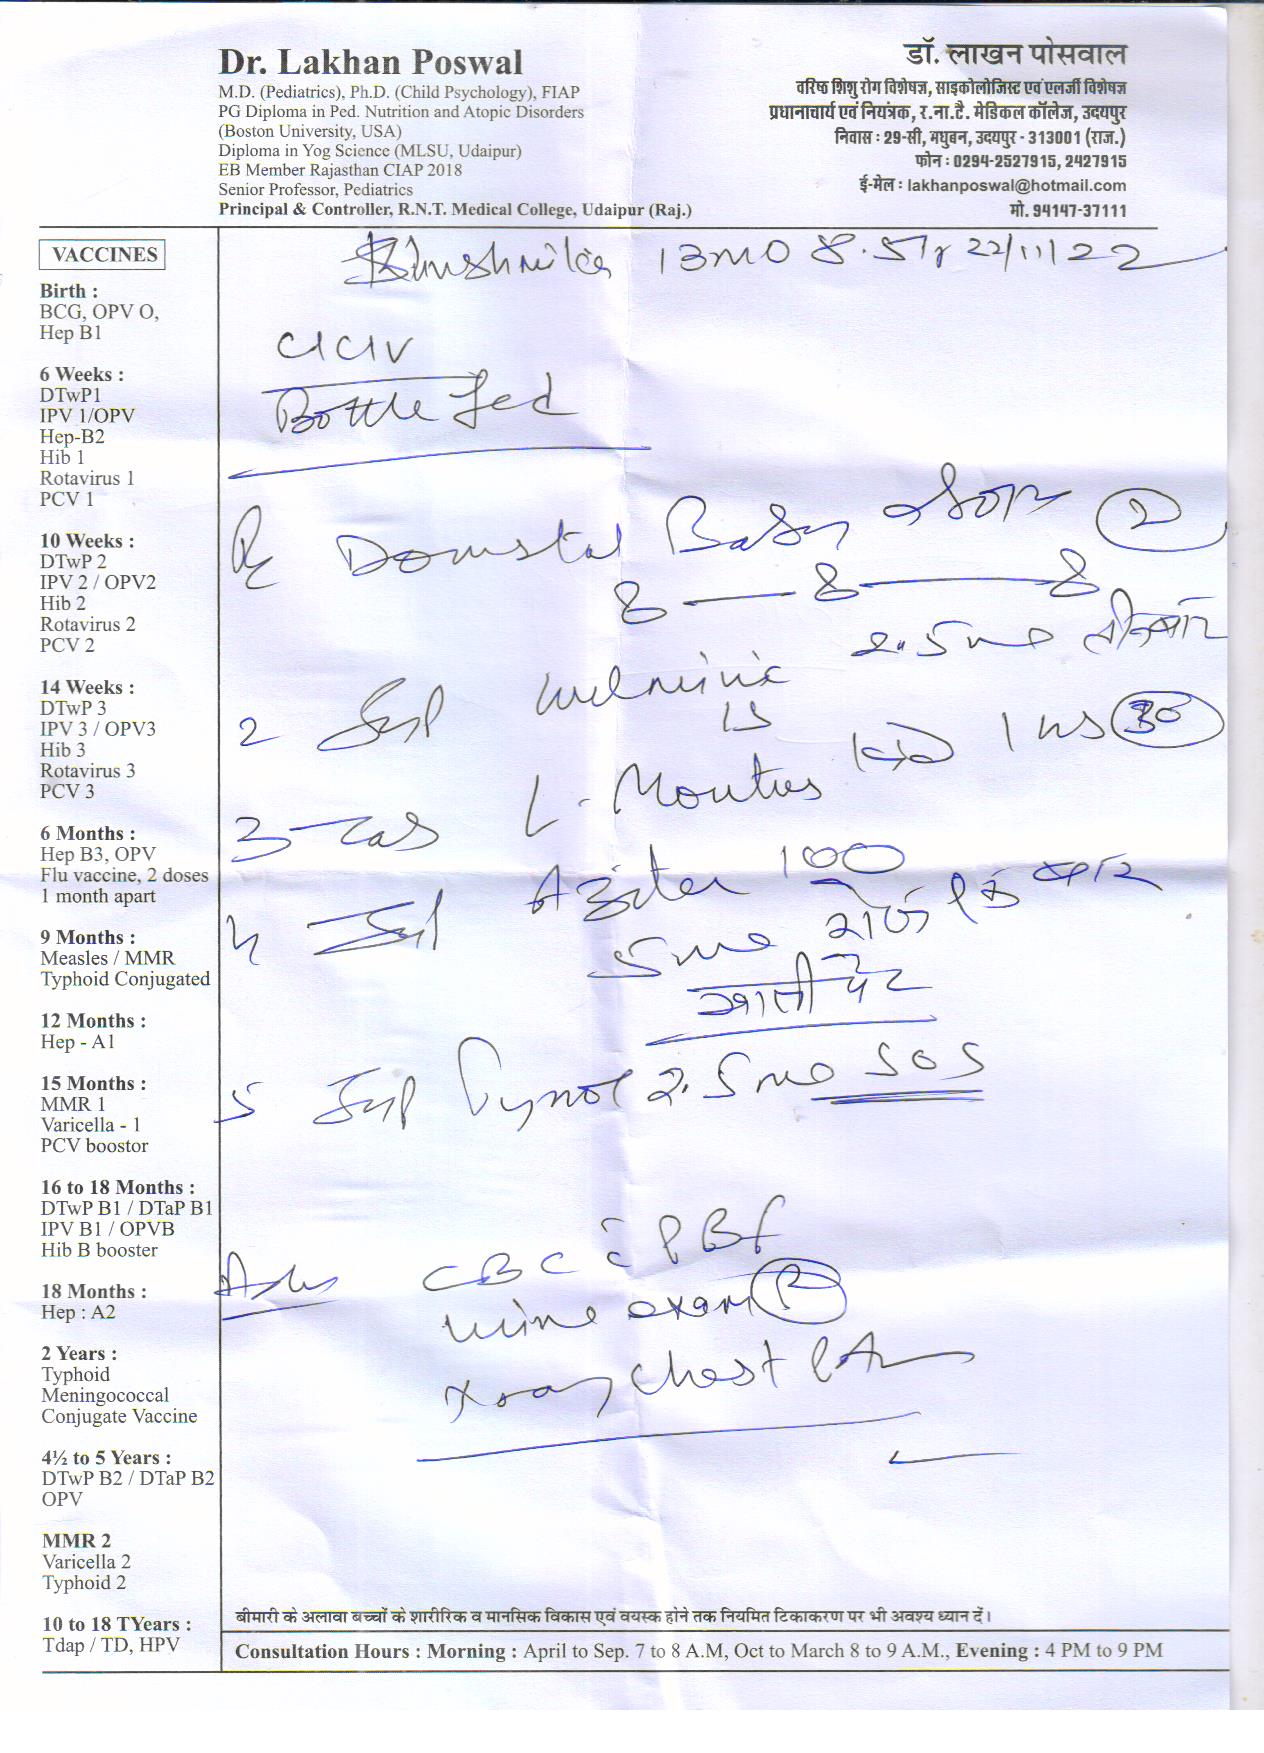 Dr. Lakhan Poswal
M.D. (Pediatrics), Ph.D. (Child Psychology), FIAP
PG Diploma in Ped. Nutrition and Atopic Disorders
(Boston University, USA)
Diploma in Yog Science (MLSU, Udaipur)
EB Member Rajasthan CIAP 2018
Senior Professor, Pediatrics
Principal & Controller, R.N.T. Medical College, Udaipur (Raj.)
डॉ. लाखन पोसवाल
वरिष्ठ शिशु रोग विशेषज्ञ, साइकोलोजिस्ट एवं एलर्जी विशेषज्ञ
प्रधानाचार्य एवं नियंत्रक, र.ना.टै. मेडिकल कॉलेज, उदयपुर
निवास : 29-सी, मधुबन, उदयपुर - 313001 (राज.)
फोन : 0294-2527915, 2427915
ई-मेल : lakhanposwal@hotmail.com
मो. 94147-37111
VACCINES
Birth :
BCG, OPV O,
Hep B1
6 Weeks :
DTwP1
IPV 1/OPV
Hep-B2
Hib 1
Rotavirus 1
PCV 1
10 Weeks :
DTwP 2
IPV 2 / OPV2
Hib 2
Rotavirus 2
PCV 2
14 Weeks :
DTwP 3
IPV 3 / OPV3
Hib 3
Rotavirus 3
PCV 3
6 Months :
Hep B3, OPV
Flu vaccine, 2 doses
1 month apart
9 Months :
Measles / MMR
Typhoid Conjugated
12 Months :
Hep - A1
15 Months :
MMR 1
Varicella - 1
PCV boostor
16 to 18 Months :
DTwP B1 / DTaP B1
IPV B1 / OPVB
Hib B booster
18 Months :
Hep : A2
2 Years :
Typhoid
Meningococcal
Conjugate Vaccine
4½ to 5 Years :
DTwP B2 / DTaP B2
OPV
MMR 2
Varicella 2
Typhoid 2
10 to 18 TYears :
Tdap / TD, HPV
13mo 22/11/22
Bottle fed
Domstal Baby 2
8 — 8 — 8
2.5ml
2 Syp
15
3 L-Montus kid 1 HS 30
4 Syp Aziter 100
5ml रोज एक बार
खाली पेट
5 Syp 2.5ml SOS
Adv CBC c̄ PBF
urine exam R
Xray Chest PA
बीमारी के अलावा बच्चों के शारीरिक व मानसिक विकास एवं वयस्क होने तक नियमित टिकाकरण पर भी अवश्य ध्यान दें।
Consultation Hours : Morning : April to Sep. 7 to 8 A.M, Oct to March 8 to 9 A.M., Evening : 4 PM to 9 PM